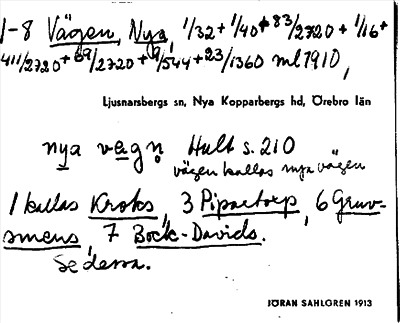 1-8 Vägen, Nya, 1/32 + 1/40 + 83/2720 + 1/16 +
411/2720 + 69/2720 + 9/544 + 23/1360 ml 1910,
Ljusnarsbergs sn, Nya Kopparbergs hd, Örebro län
nya vägn Hult s. 210
vägen kallas nya vägen
1 kallas Kroks, 3 Pipartorp, 6 Gruv-
smens, 7 Bock-Davids.
Se dessa.
JÖRAN SAHLGREN 1913